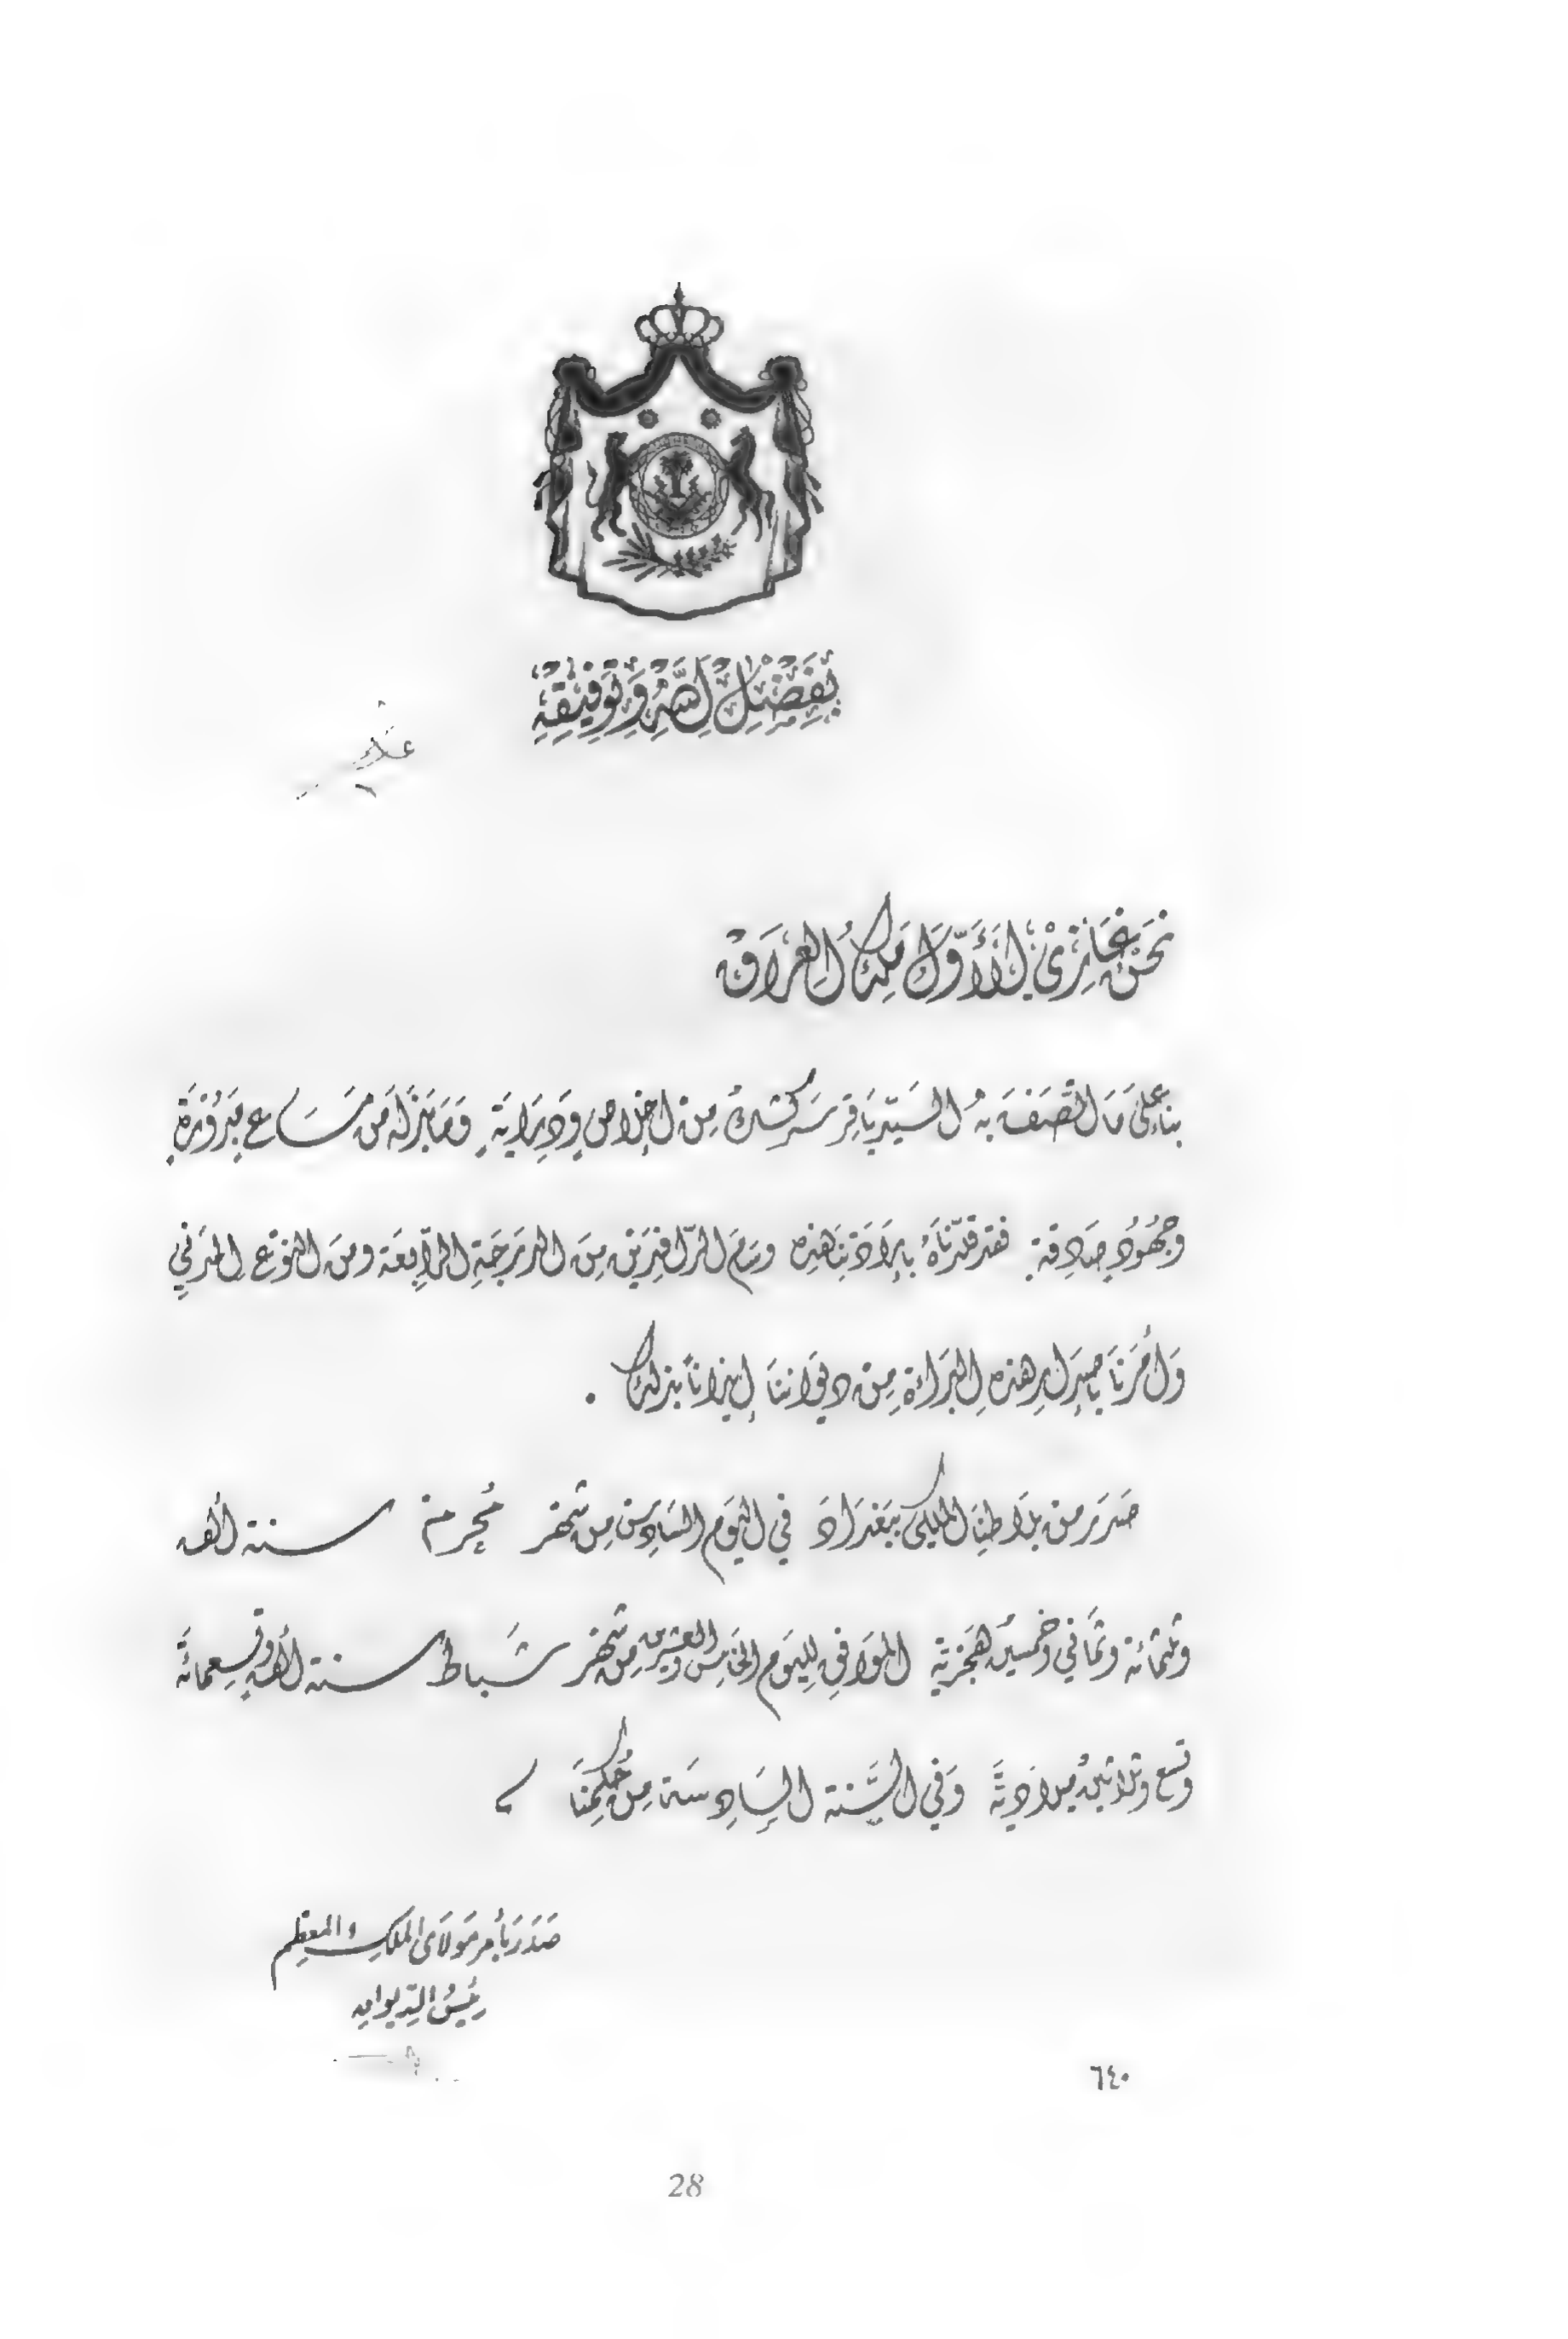 بفضل الله وتوفيقه
نحن غازي الأول ملك العراق
بناء على ما اتصف به السيد باقر سركشك من إخلاص ودراية وما بذله من مساع مبرورة
وجهود صادقة فقد قلدناه بإرادتنا هذه وسام الرافدين من الدرجة الرابعة ومن النوع المدني
وأمرنا بإصدار هذه البراءة من ديواننا إيذانا بذلك .
صدر من بلاطنا الملكي ببغداد في اليوم السادس من شهر محرم سنة ألف
وثلثمائة وثماني وخمسين هجرية الموافق لليوم الخامس والعشرين من شهر شباط سنة ألف وتسعمائة
وتسع وثلاثين ميلادية وفي السنة السادسة من حكمنا
صدر بأمر مولاي الملك المعظم
رئيس الديوان
٦٤٠
28